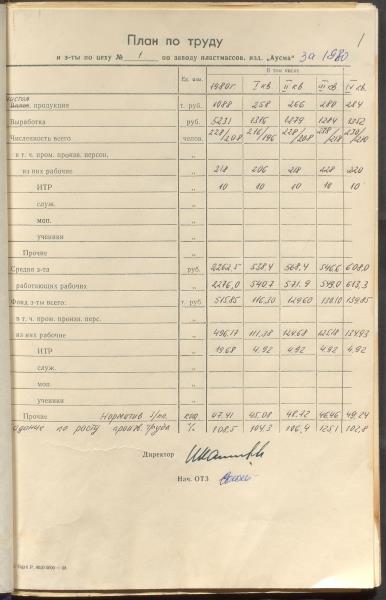 1
План по труду
и з-ты по цеху № 1 по заводу пластмассов. изд. „Аусма" за 1980
Ед. изм. В том числе
1980г. I кв. II кв. III кв. IV кв.
чистая
Валов. продукция т. руб. 1088 258 266 280 284
Выработка руб. 5231 1316 1279 1284 1352
Численность всего челов. 228/208 216/196 228/208 238/218 230/210
в т. ч. пром. произв. персон. „
из них рабочие „ 218 206 218 228 220
ИТР „ 10 10 10 10 10
служ. „
моп. „
ученики „
Прочие „
Средняя з-та руб. 2262,5 538,4 568,4 546,6 608,0
работающих рабочих „ 2276,0 540,7 571,9 549,0 613,3
Фонд з-ты всего: т. руб. 515,85 116,30 129,60 130,10 139,85
в т. ч. пром. произв. перс. „
из них рабочие „ 496,17 111,38 124,68 125,18 134,93
ИТР „ 19,68 4,92 4,92 4,92 4,92
служ. „
моп. „
ученики „
Прочие Норматив з/пл. коп. 47,41 45,08 48,72 46,46 49,24
Задание по росту произв. труда % 108,5 104,3 106,4 125,1 102,8
Директор
Нач. ОТЗ